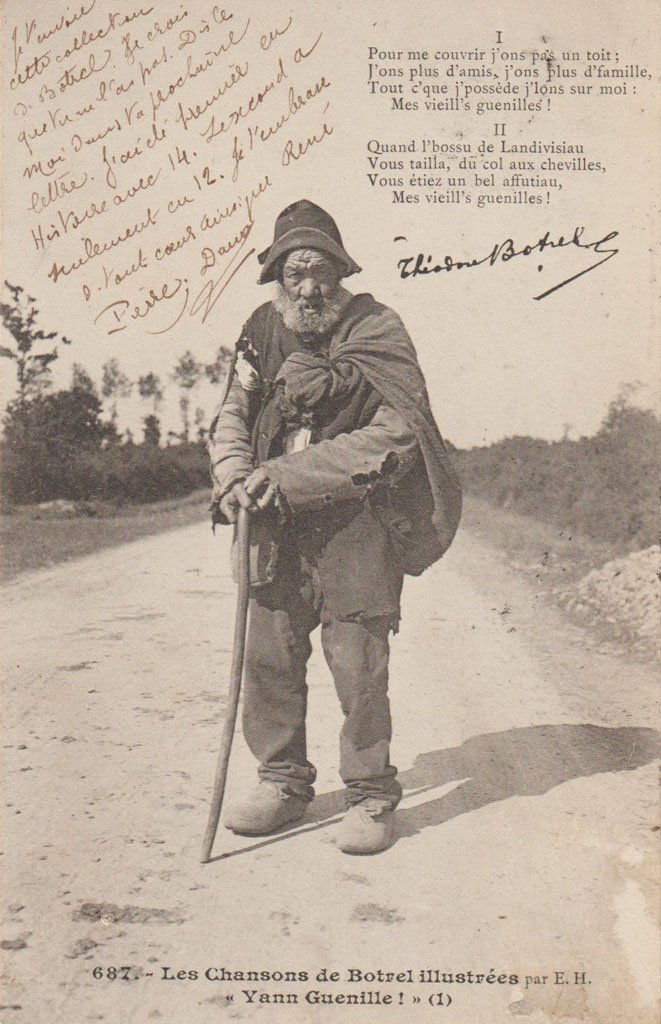 Je t'envoie
cette collection
d. Botrel. Je crois
que tu ne l'as pas. Dis le
moi dans ta prochaine
lettre. J'ai été premier en
Histoire avec 14. Le second a
seulement eu 12. Je t'embrasse
d. tout cœur ainsi que René
Père.
I
Pour me couvrir j'ons pas un toit ;
J'ons plus d'amis, j'ons plus d'famille,
Tout c'que j'possède j'lons sur moi :
Mes vieill's guenilles !
II
Quand l'bossu de Landivisiau
Vous tailla, du col aux chevilles,
Vous étiez un bel affutiau,
Mes vieill's guenilles !
Théodore Botrel
687. - Les Chansons de Botrel illustrées par E. H.
« Yann Guenille ! » (1)